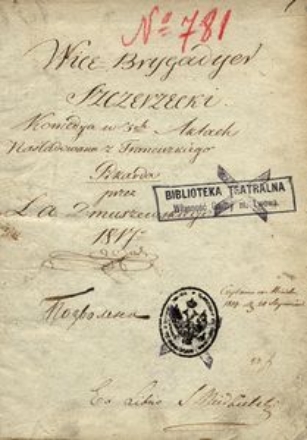 № 781
Wice Brygadyer
SZCZERZECKI.
Komedya w 3ch Aktach
Naśladowana z Francuzkiego
Pikarda
przez
L. A. Dmuszewskiego
1817
BIBLIOTEKA TEATRALNA
Własność Gminy m. Lwowa.
Позволена
Ex Libris